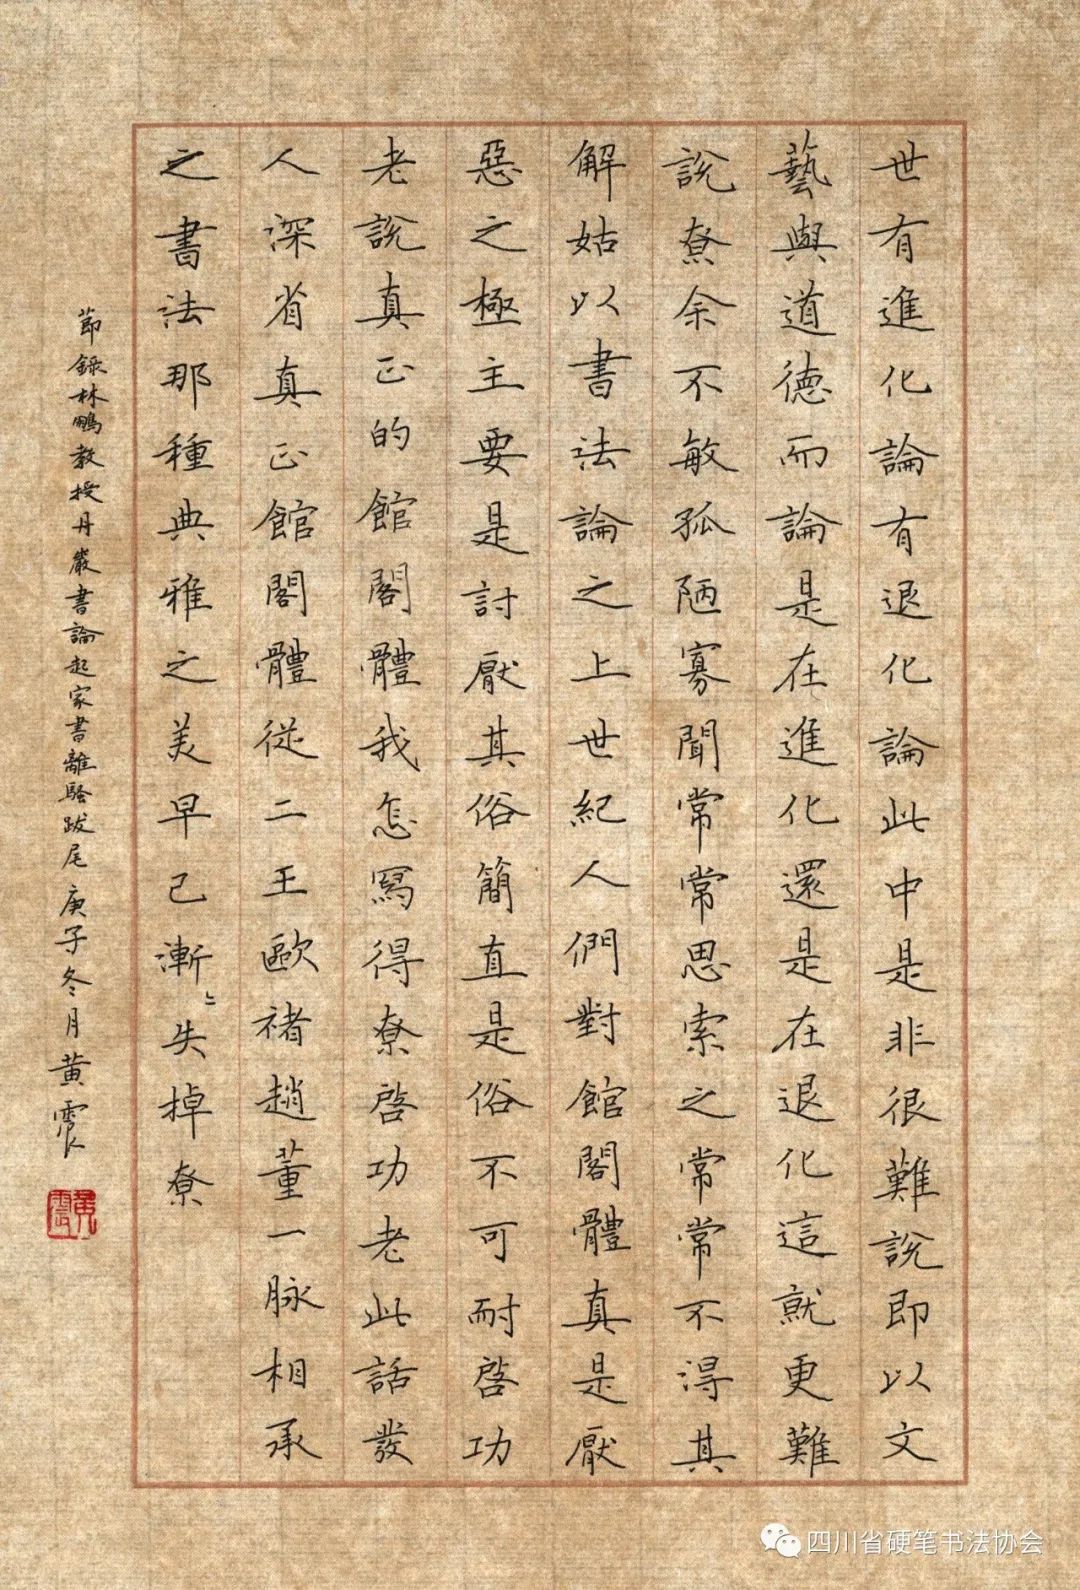 世有進化論有退化論此中是非很難說即以文
藝與道德而論是在進化還是在退化這就更難
說尞余不敏孤陋寡聞常常思索之常常不得其
解姑以書法論之上世紀人們對館閣體真是厭
惡之極主要是討厭其俗簡直是俗不可耐啓功
老說真正的館閣體我怎寫得尞啓功老此話發
人深省真正館閣體從二王歐褚趙董一脉相承
之書法那種典雅之美早已漸〻失掉尞
節錄林鵬教授丹巖書論起家書離騷跋尾庚子冬月黄震
黄震
四川省硬笔书法协会